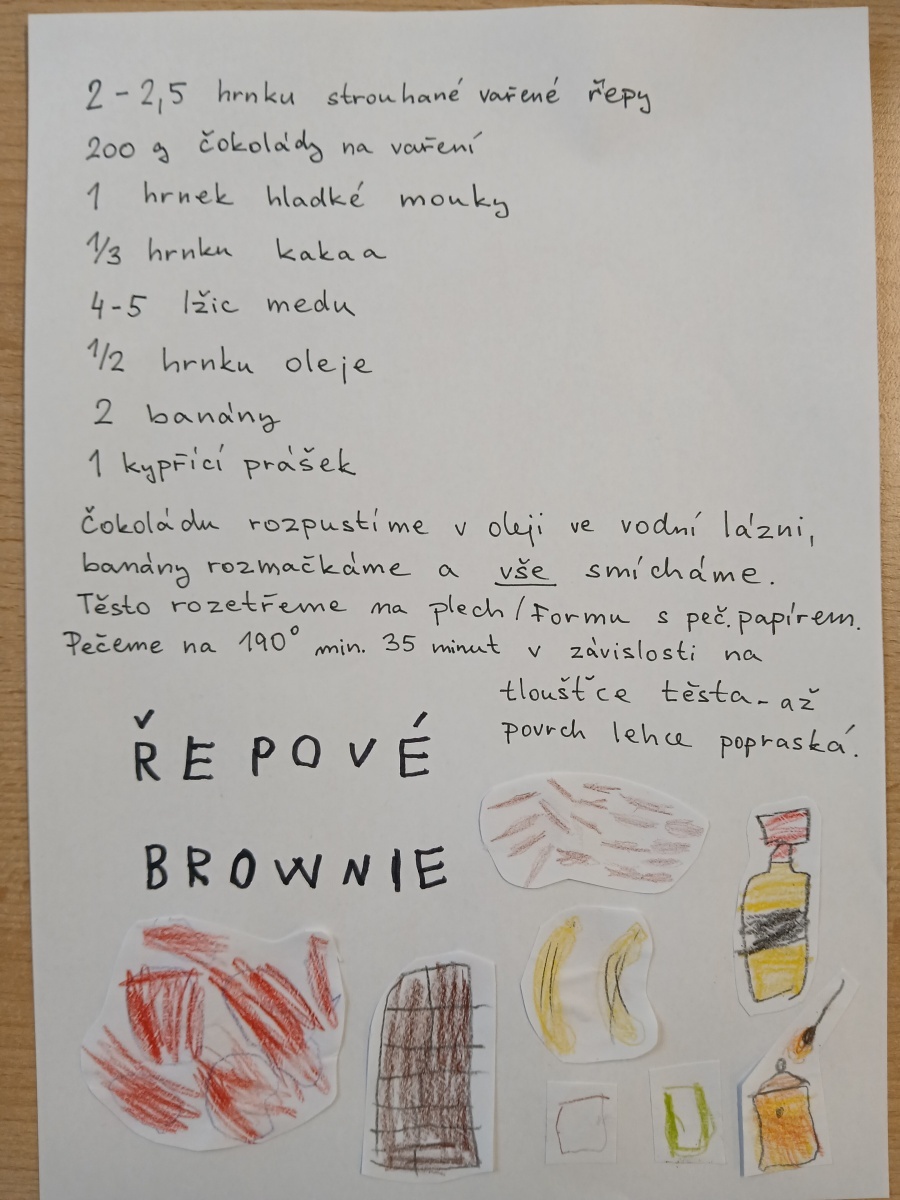 2 - 2,5 hrnku strouhané vařené řepy
200 g čokolády na vaření
1 hrnek hladké mouky
1/3 hrnku kakaa
4-5 lžic medu
1/2 hrnku oleje
2 banány
1 kypřící prášek
Čokoládu rozpustíme v oleji ve vodní lázni,
banány rozmačkáme a vše smícháme.
Těsto rozetřeme na plech/formu s peč. papírem.
Pečeme na 190° min. 35 minut v závislosti na
tloušťce těsta - až
povrch lehce popraská.
ŘEPOVÉ
BROWNIE